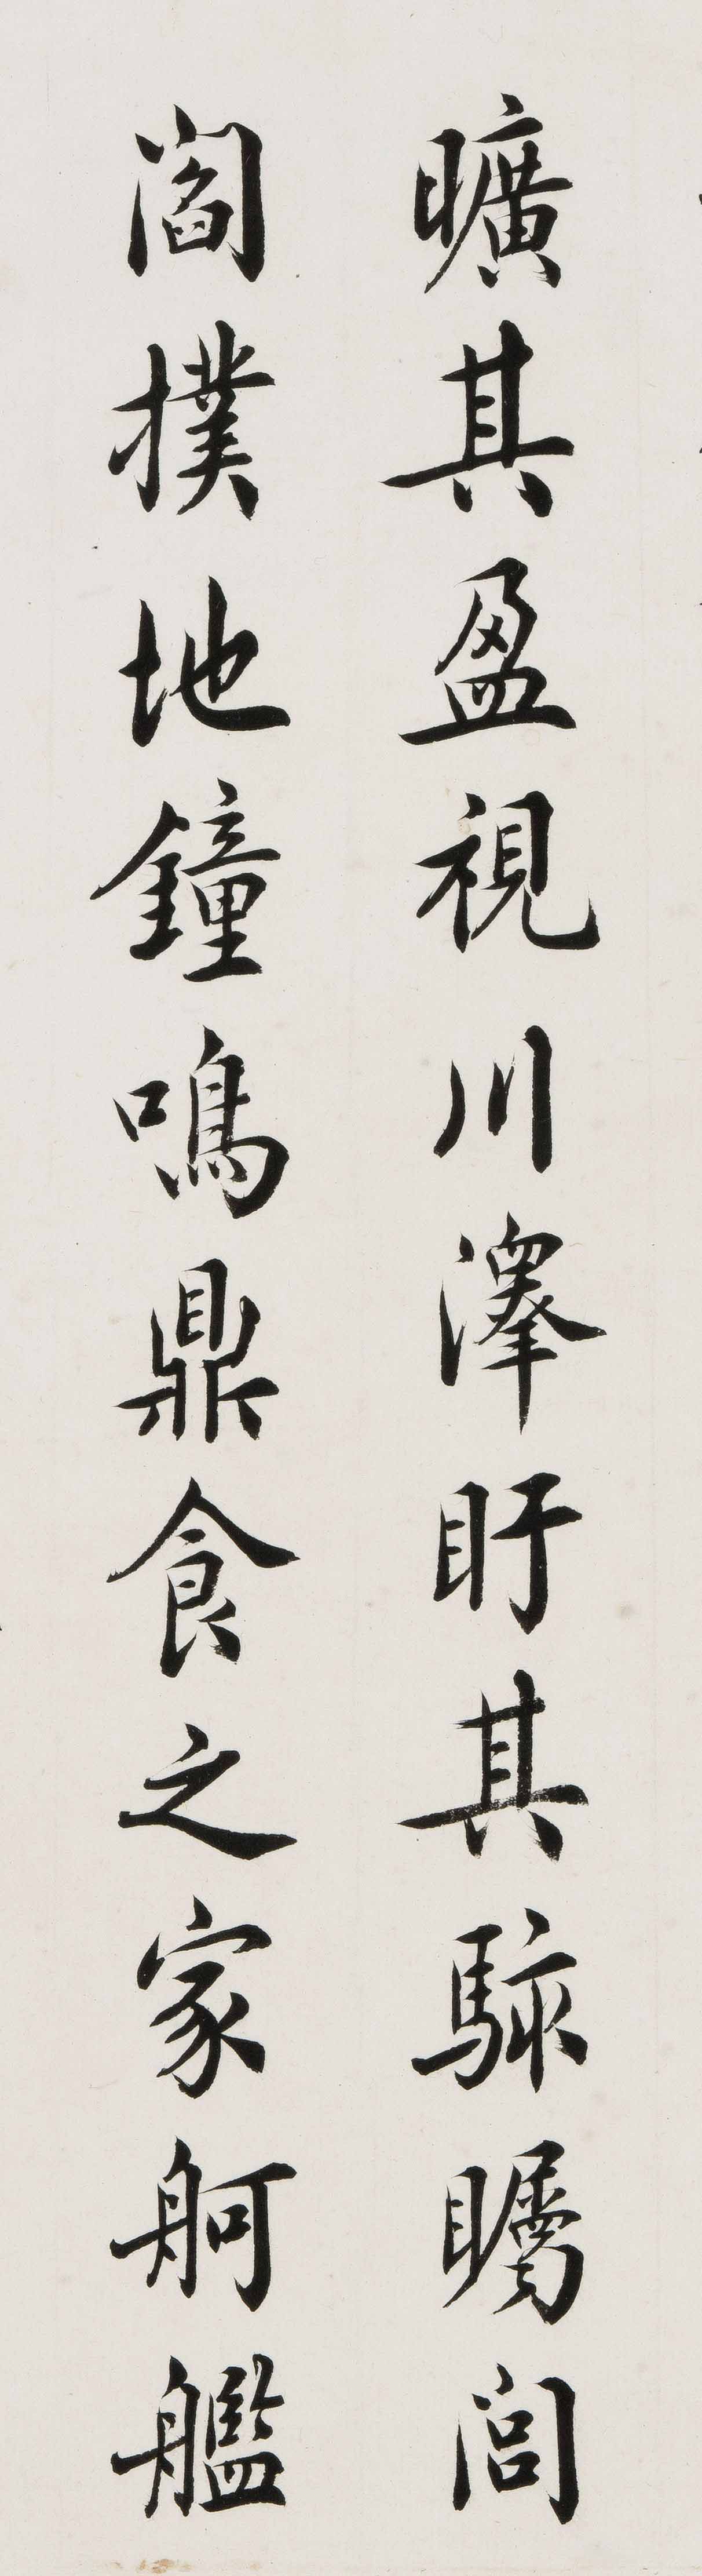 曠其盈視川澤盱其駭矚閭
閻撲地鐘鳴鼎食之家舸艦